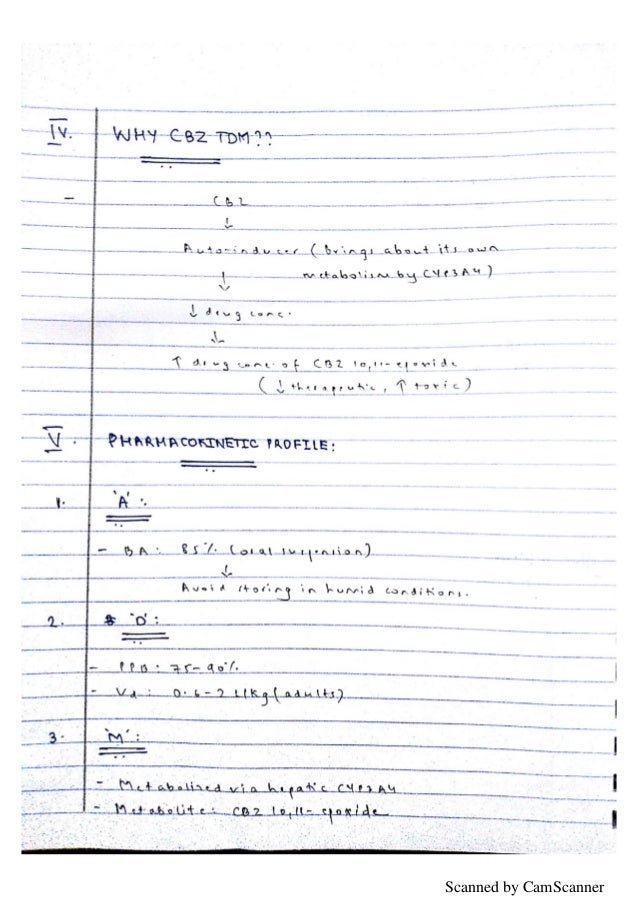 IV. WHY CBZ TDM??
- CBZ
↓
Auto-inducer (Brings about its own
metabolism by CYP3A4)
↓
↓ drug conc.
↓
↑ drug conc. of CBZ 10,11-epoxide
(↓ therapeutic, ↑ toxic)
V. PHARMACOKINETIC PROFILE:
1. 'A':
- BA: 85% (oral suspension)
↓
Avoid storing in humid conditions.
2. 'D':
- PPB: 75-90%
- Vd: 0.6-2 L/Kg (adults)
3. 'M':
- Metabolised via hepatic CYP3A4
- Metabolite: CBZ 10,11-epoxide
Scanned by CamScanner